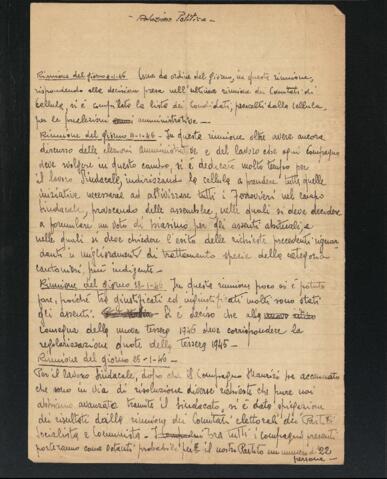 - Relazione Politica -
Riunione del giorno 4-1-46 Come da ordine del giorno, in questa riunione,
rispondendo alla decisione presa nell'ultima riunione dei Comitati di
cellula, si è compilata la lista dei candidati, prescelti dalla cellula,
per le preelezioni amministrative. -
Riunione del giorno 11-1-46 - In questa riunione oltre avere ancora
discusso delle elezioni amministrative e del lavoro che ogni compagno
deve svolgere in questo campo, si è dedicato molto tempo per
il lavoro Sindacale, indirizzando la cellula a prendere tutte quelle
iniziative necessarie ad attivizzare tutti i Ferrovieri nel campo
Sindacale, provocando delle assemblee, nelle quali si deve decidere
a formulare un voto di biasimo per gli assenti abituali, e
nelle quali si deve chiedere l'esito delle richieste precedenti riguar
danti i miglioramenti di trattamento specie della categoria
cantonieri, più indigente. -
Riunione del giorno 18-1-46 - In questa riunione poco si è potuto
fare, poiché tra giustificati ed ingiustificati molti sono stati
gli assenti. - Si è deciso che alla
consegna della nuova tessera 1946 deve corrispondere la
regolarizzazione quote della tessera 1945. -
Riunione del giorno 25-1-46 -
Per il lavoro Sindacale, dopo che il Compagno ha accennato
che sono in via di risoluzione diverse richieste che pure noi
abbiamo avanzato tramite il Sindacato, si è data spiegazione
dei risultati della riunione dei Comitati elettorali dei Partiti
Socialista e Comunista. - tra tutti i compagni presenti
porteranno come votanti probabili per il nostro Partito un numero di 22
persone. -